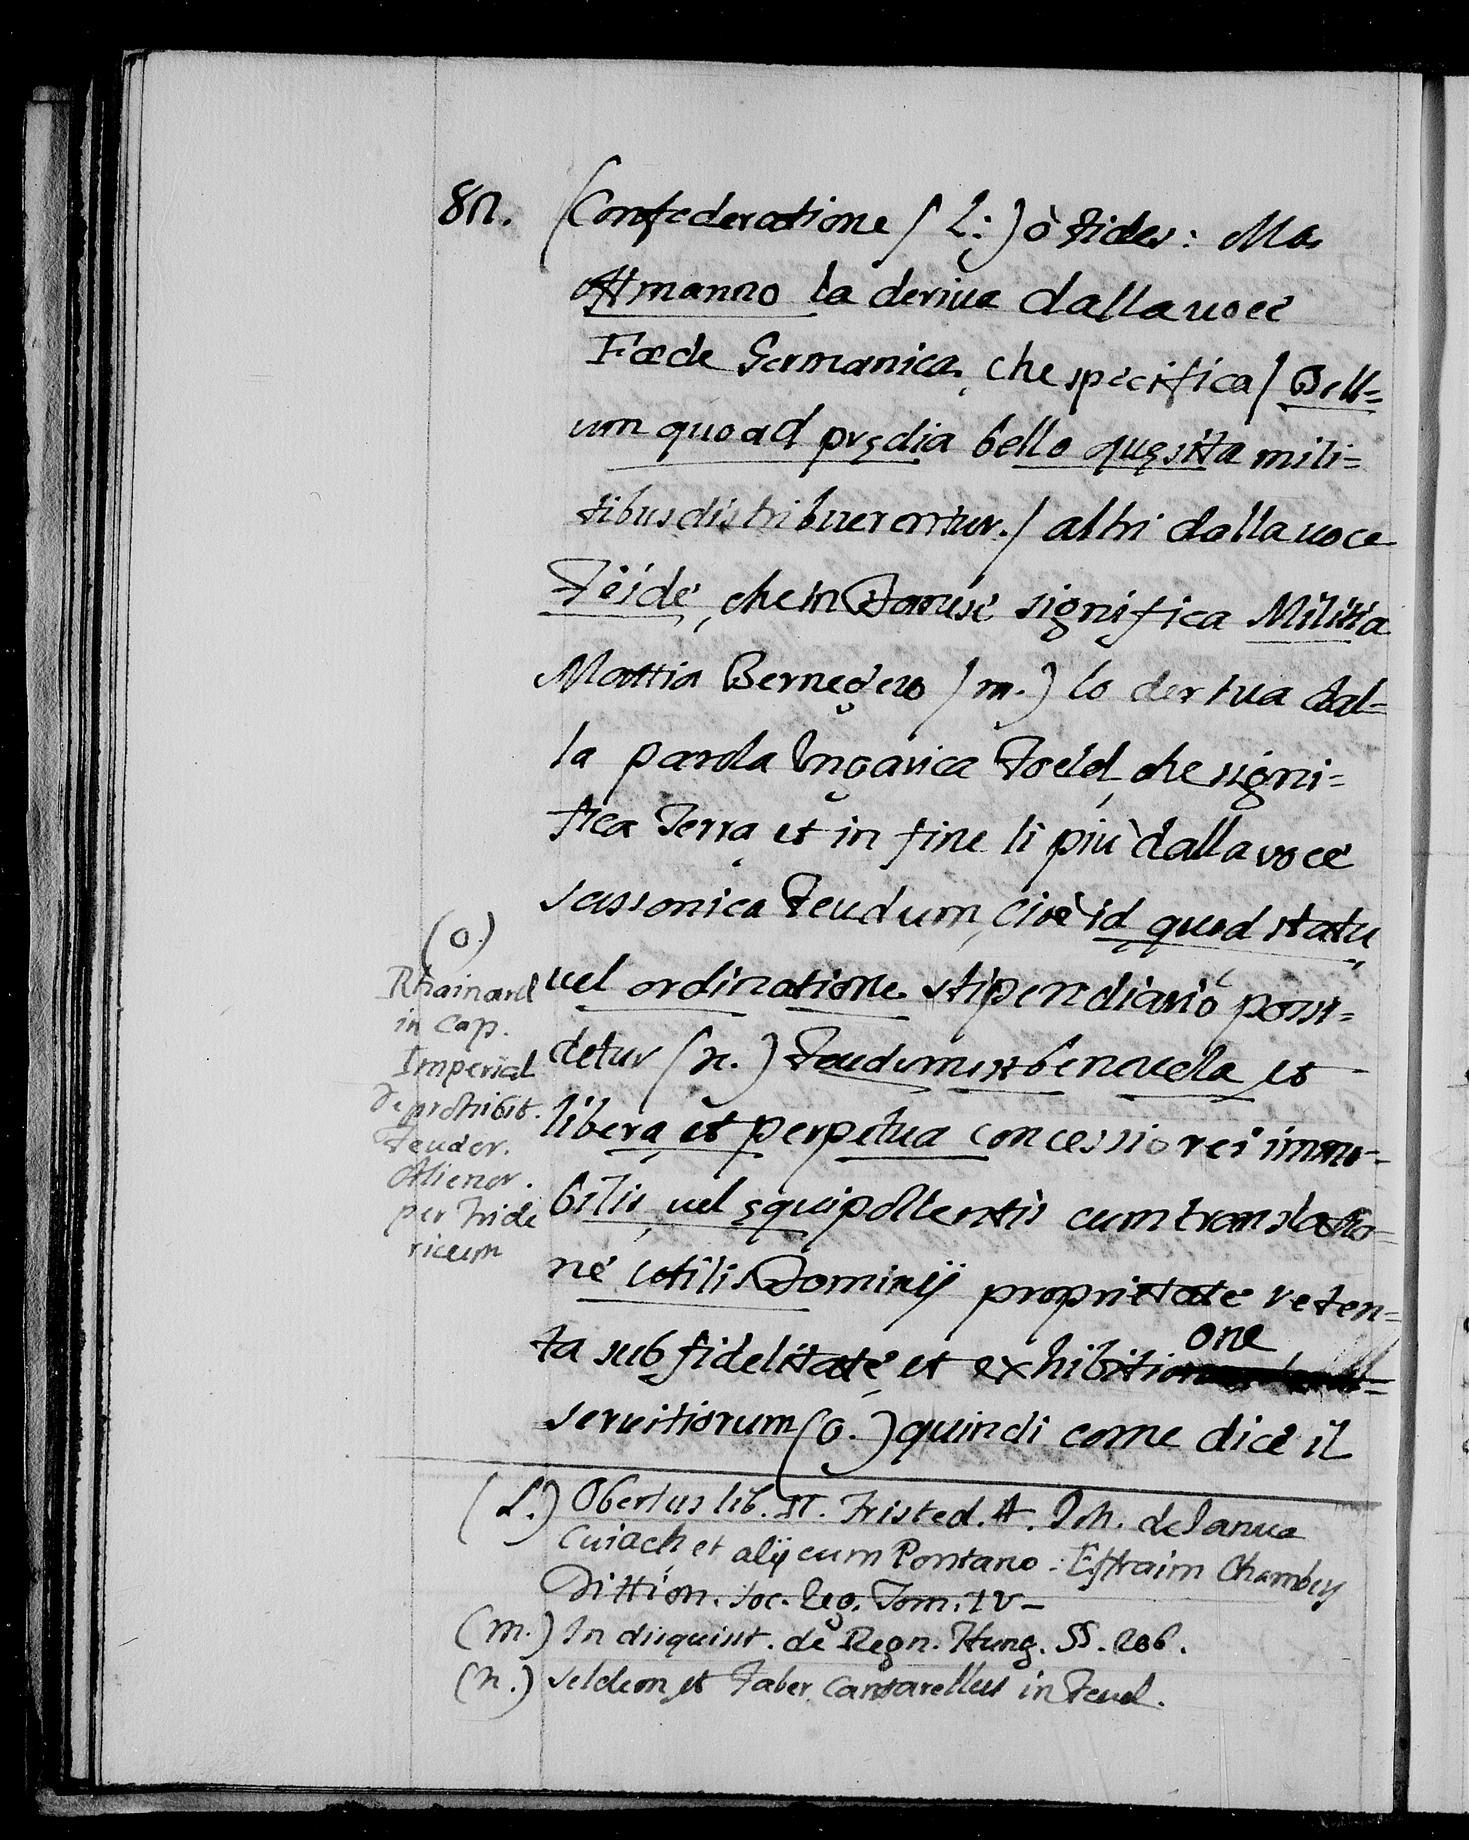 80. (Confederatione (L:) ò Fides: Ma
Ottmanno la deriua dalla uoce
Fœde Germanica, che specifica (Bell=
um quoad prędia bello quęsita mili=
tibus distribuerentur.) altri dalla uoce
Feide, che in Danese significa Militia
Mattia Bernegero (m.) lo deriua dal=
la parola Ungarica Foeld, che signi=
fica Terra et in fine li più dalla voce
sassonica Feudum, cioè id quod statu
uel ordinatione stipendiariò possi=
detur (n.) Feudum est beneuola et
libera et perpetua concessio rei immo=
bilis, uel ęquipollentis cum translatio=
ne utilis Dominij proprietate reten=
ta sub fidelitate, et exhibitione
seruitiorum (o.) quindi come dice il
(o.)
Rhainard
in Cap.
Imperial
De prohibit.
Feudor.
Alienor.
per Fride
ricum
(L.) Obertus lib. II. Fristed. 4. Joh. de Janua
Cuiach et alij cum Pontano. Effraim Chambers
Dittion. soc. leg. Tom. IV-
(m.) In disquisit. de Regn. Hung. SS. 206.
(n.) Seldem et Faber Cantarellus in Feud.